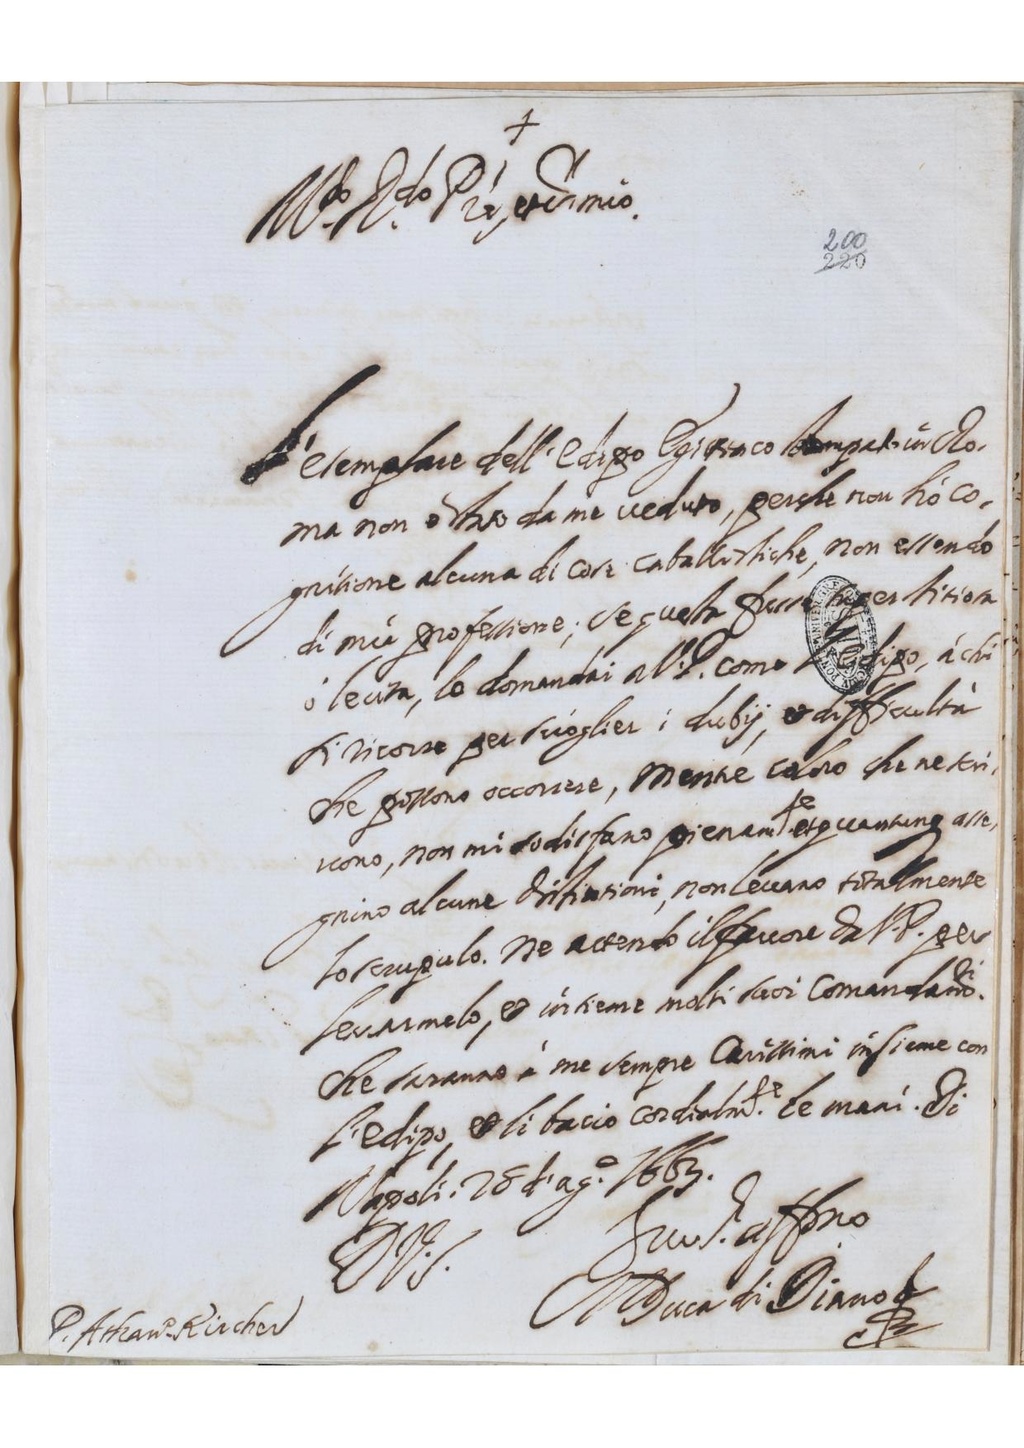 +
M.do R.do P.re, et S.r mio.
200
220
L'esemplare dell'Edipo Egittiaco stampato in Ro-
ma non è stato da me veduto, perche non hò co-
gnitione alcuna di cose caballistiche, non essendo
di mia professione; se questa fusse superstitiosa
ò lecita, lo domandai à V. P. come Edipo, à chi
si ricorre per scioglier i dubij, et difficultà
che possono occorrere, mentre coloro che ne scri-
vono, non mi sodisfano pienam.te et quantunq asse-
gnino alcune distintioni, non levano totalmente
lo scrupulo. Ne attendo il favore da V. P. per
levarmelo, et insieme molti suoi Comandam.ti
che saranno à me sempre Carissimi insieme con
l'Edipo, et li bacio cordialm.te le mani. Di
Napoli. 28 d'ag.o 1663.
D. V. P.
Ser.r aff.mo
Il Duca di Diano
P. Athan.o Kircher